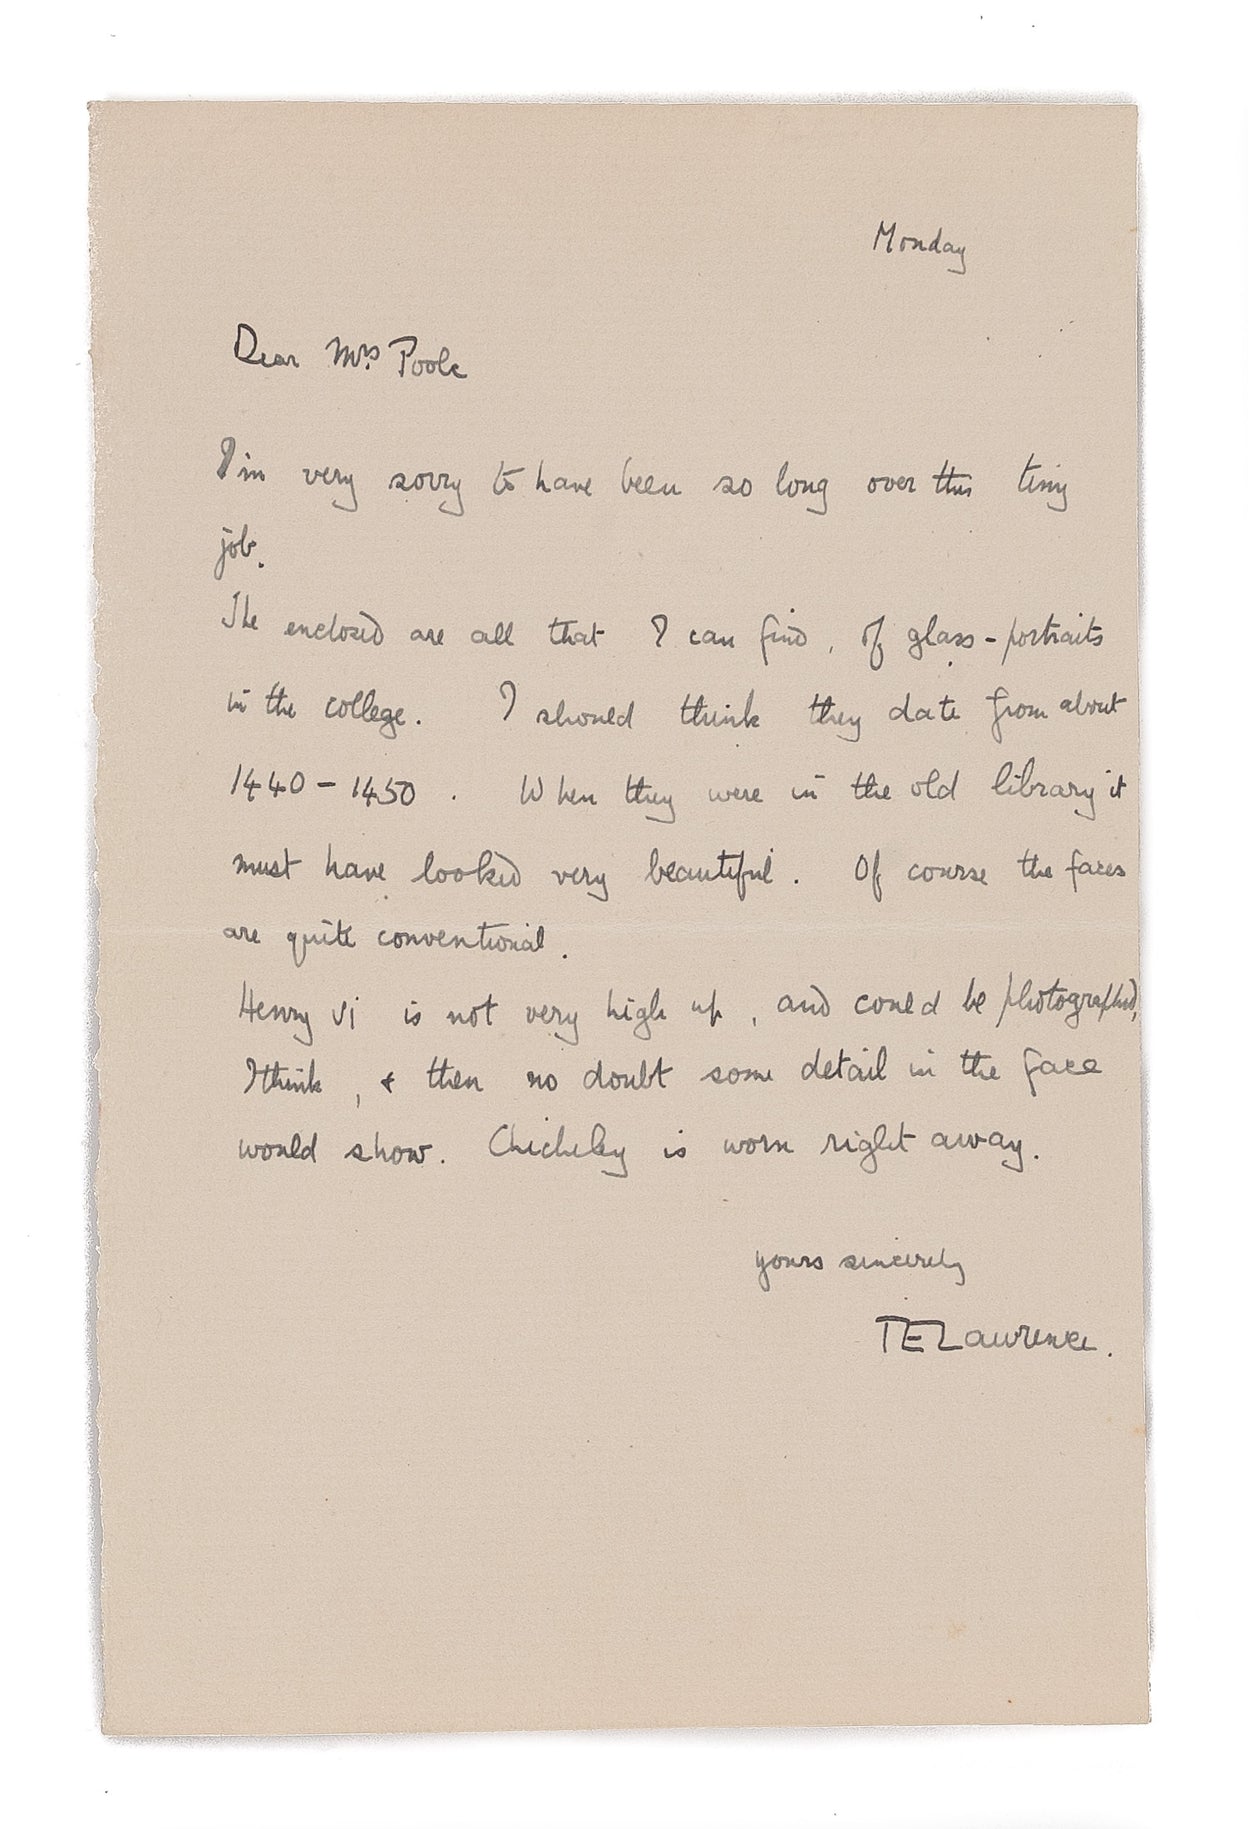 Monday
Dear Mrs. Poole
I'm very sorry to have been so long over this tiny
job.
The enclosed are all that I can find, of glass-portraits
in the college. I should think they date from about
1440-1450. When they were in the old library it
must have looked very beautiful. Of course the faces
are quite conventional.
Henry VI is not very high up, and could be photographed,
I think, & then no doubt some detail in the face
would show. Chicheley is worn right away.
yours sincerely
TELawrence.